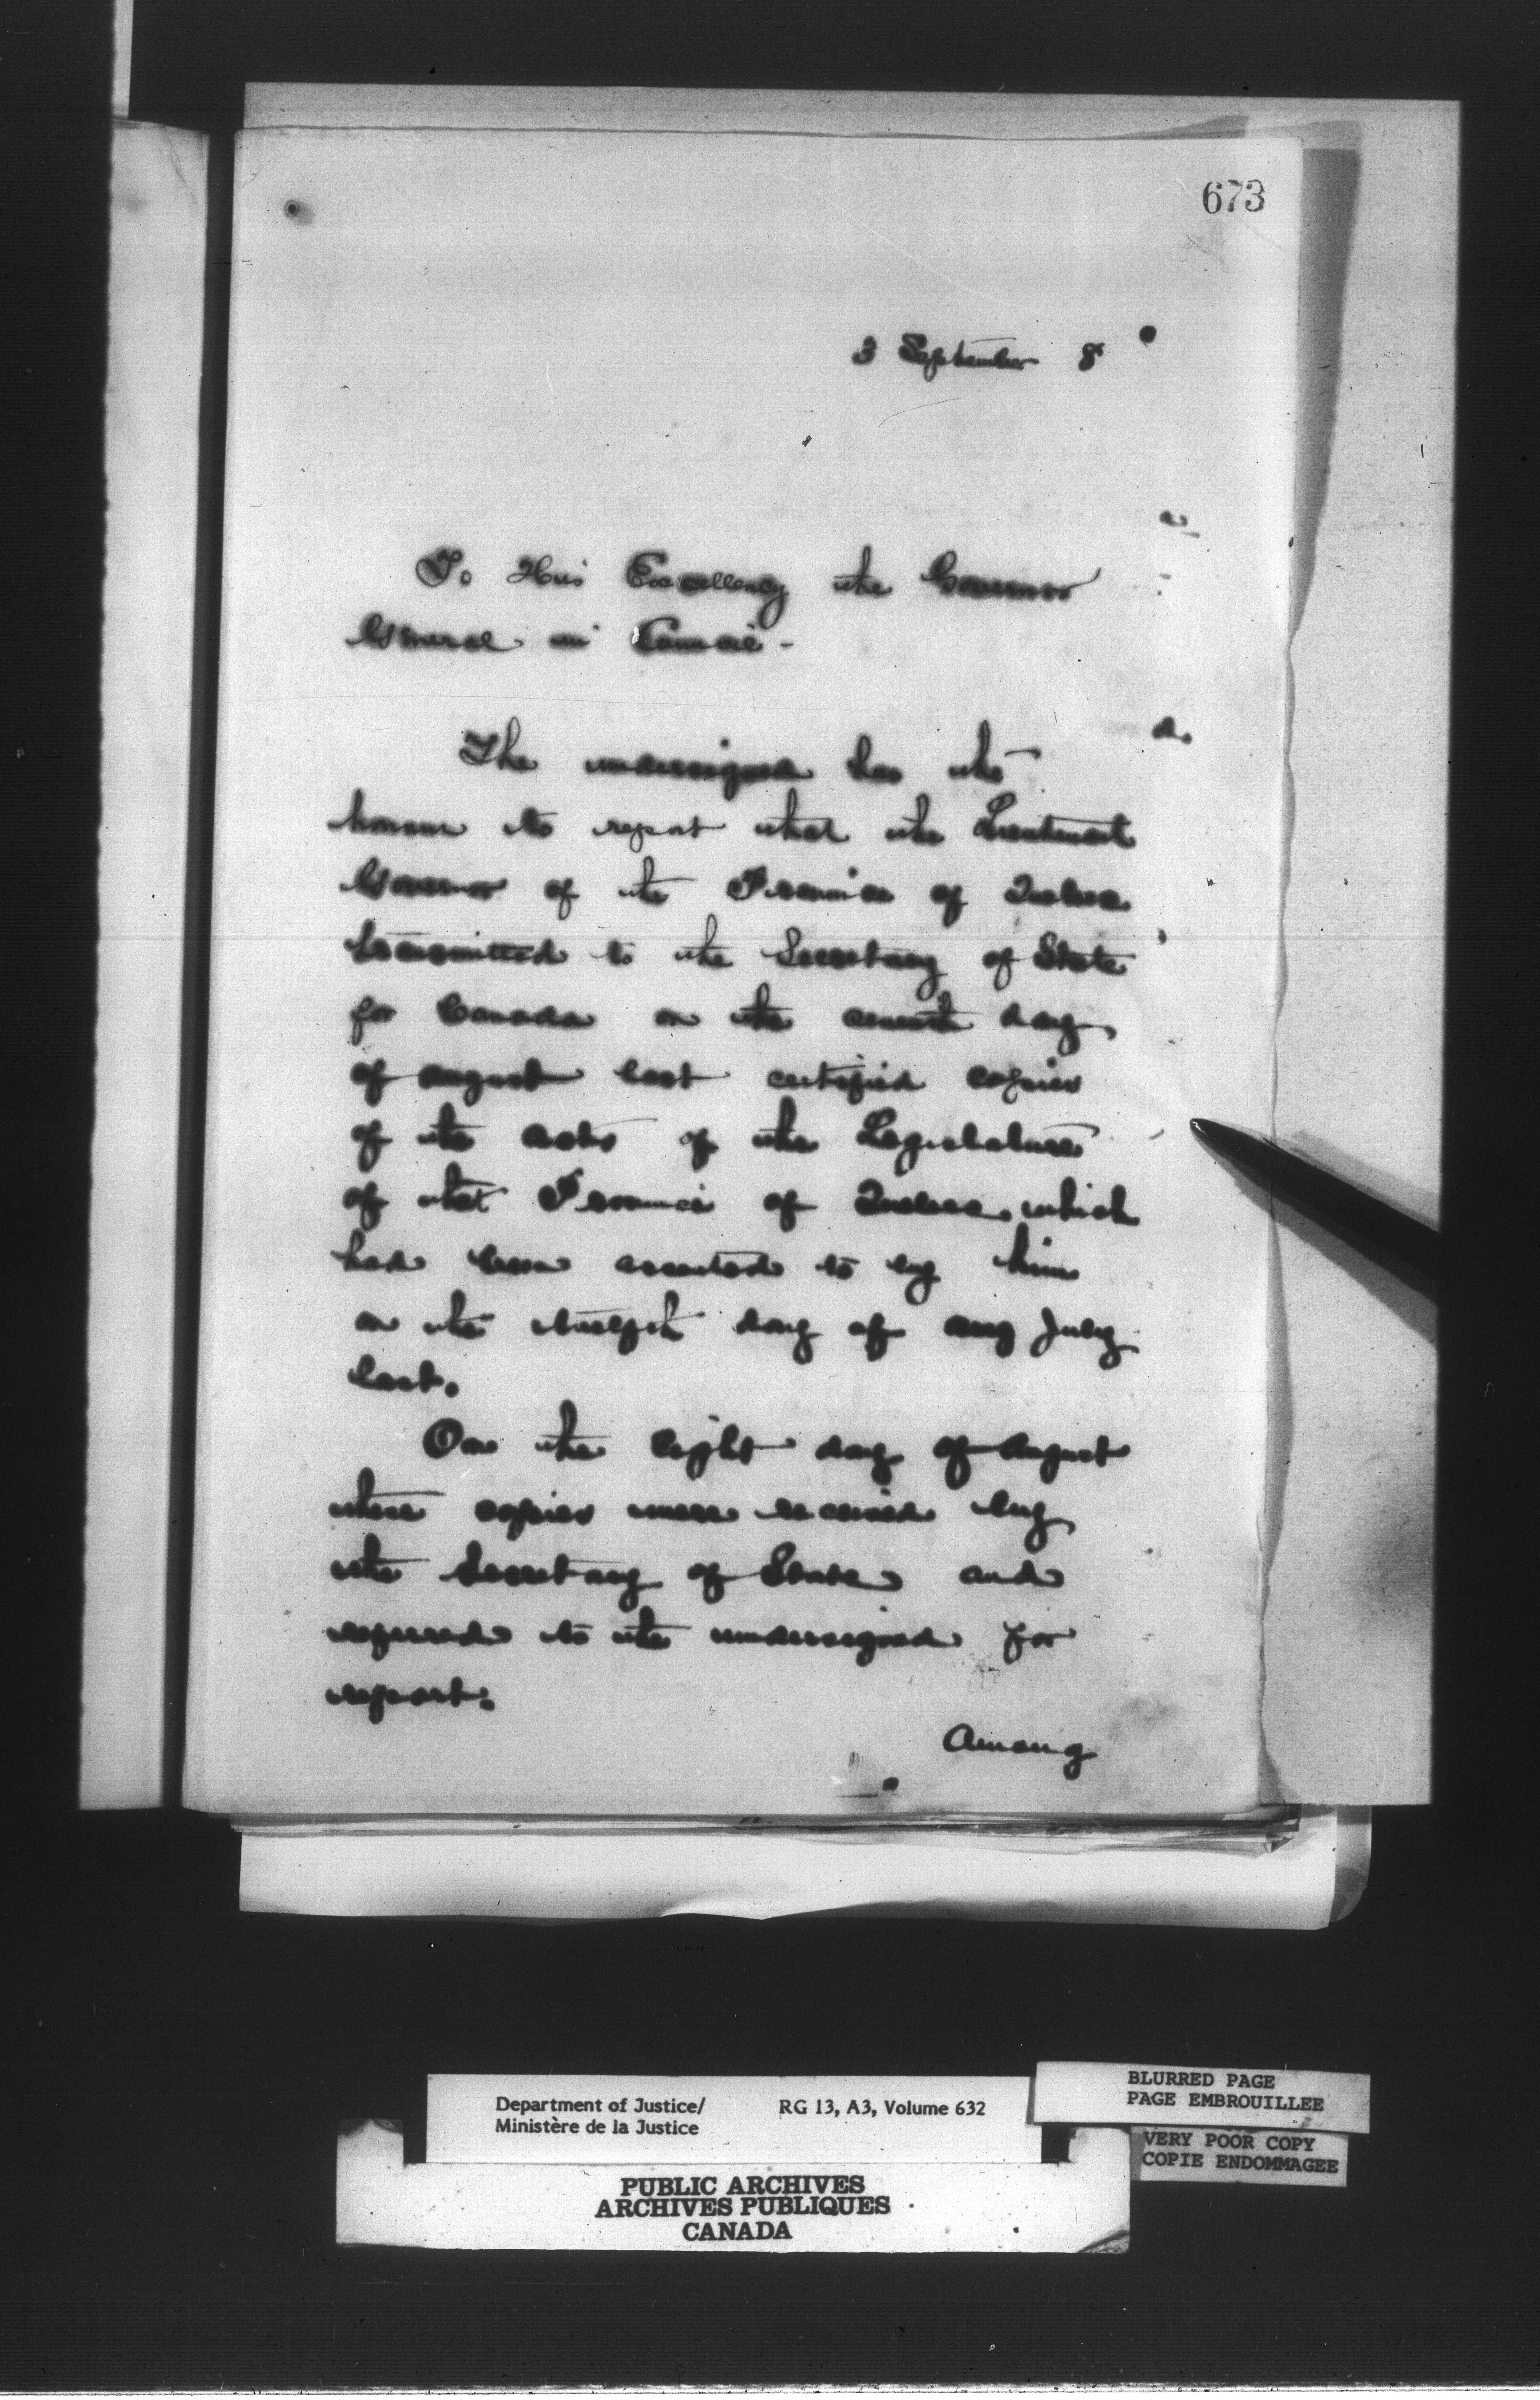 673
3 September 8
To His Excellency the Governor
General in Council -
The undersigned has the
honour to report that the Lieutenant
Governor of the Province of Quebec
transmitted to the Secretary of State
for Canada on the seventh day
of August last certified copies
of the Acts of the Legislature
of that Province of Quebec which
had been assented to by him
on the twelfth day of Aug July
last.
On the eight day of August
these copies were received by
the Secretary of State and
referred to the undersigned for
report.
Among
Department of Justice/ RG 13, A3, Volume 632
Ministère de la Justice
BLURRED PAGE
PAGE EMBROUILLEE
VERY POOR COPY
COPIE ENDOMMAGEE
PUBLIC ARCHIVES
ARCHIVES PUBLIQUES
CANADA